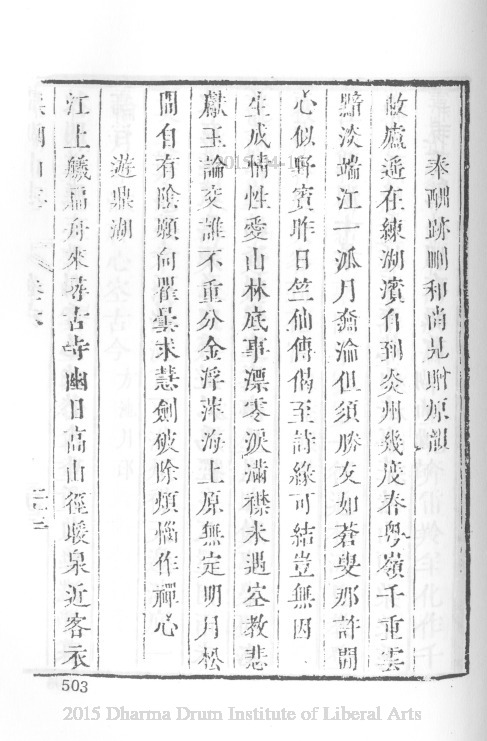 奉酬跡刪和尚見贈原韻
敝廬遥在練湖濱自到炎州幾度春粤嶺千重雲
黯淡端江一派月奫淪但須勝友如蒼叟那許閒
心似野賓昨日竺仙傳偈至詩緣可結豈無因
生成情性愛山林底事漂零淚滿襟未遇空教悲
獻玉論交誰不重分金浮萍海上原無定明月松
間自有陰願向瞿曇求慧劍破除煩惱作禪心
遊鼎湖
江上艤扁舟來尋古寺幽日高山徑暖泉近客衣
503
2015 Dharma Drum Institute of Liberal Arts